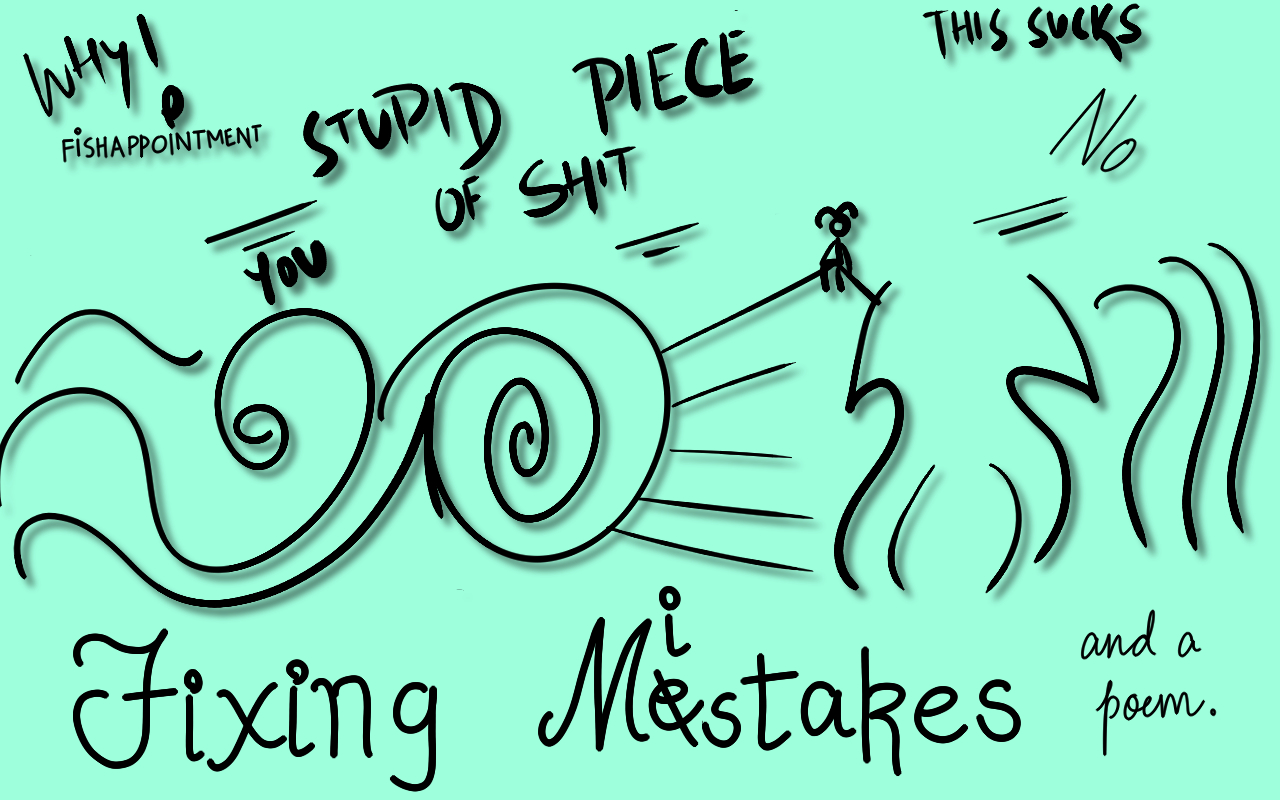 WHY!
FISHAPPOINTMENT
STUPID PIECE
OF SHIT
YOU
THIS SUCKS
NO
Fixing Mistakes
and a
poem.